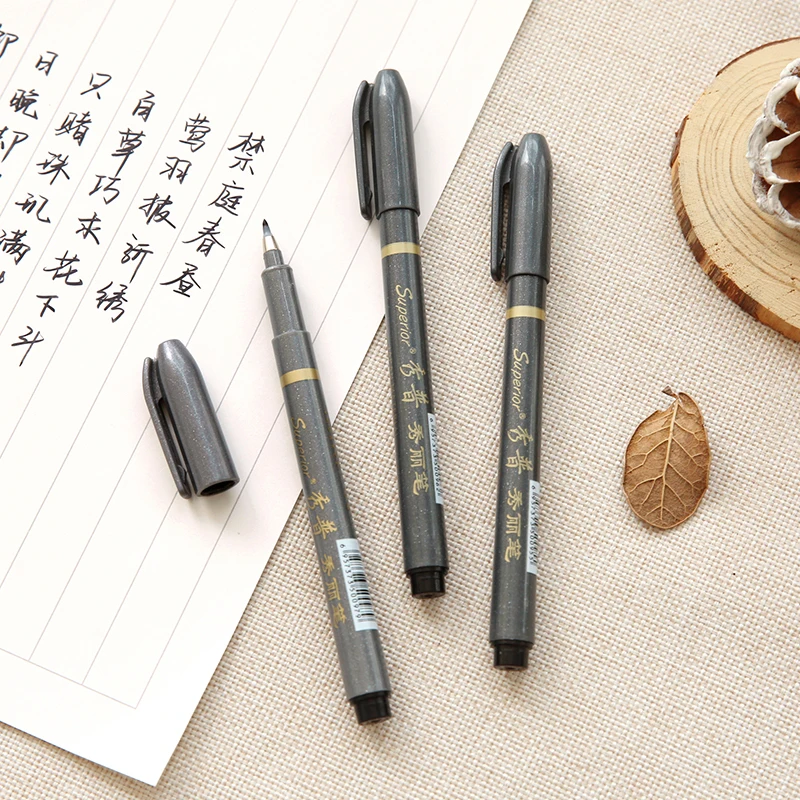 禁庭春昼
莺羽披新绣
百草巧求花下斗
只赌珠玑满
日晚却
Superior® 秀普 秀丽笔
6957373500979
Superior® 秀普 秀丽笔
Superior® 秀普 秀丽笔